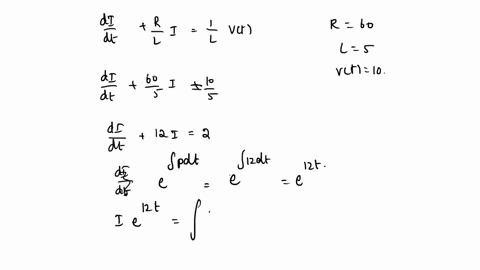 dI/dt + R/L I = 1/L V(t)
R = 60
L = 5
V(t) = 10.
dI/dt + 60/5 I = 10/5
dI/dt + 12I = 2
e^∫pdt = e^∫12dt = e^12t.
I e^12t = ∫